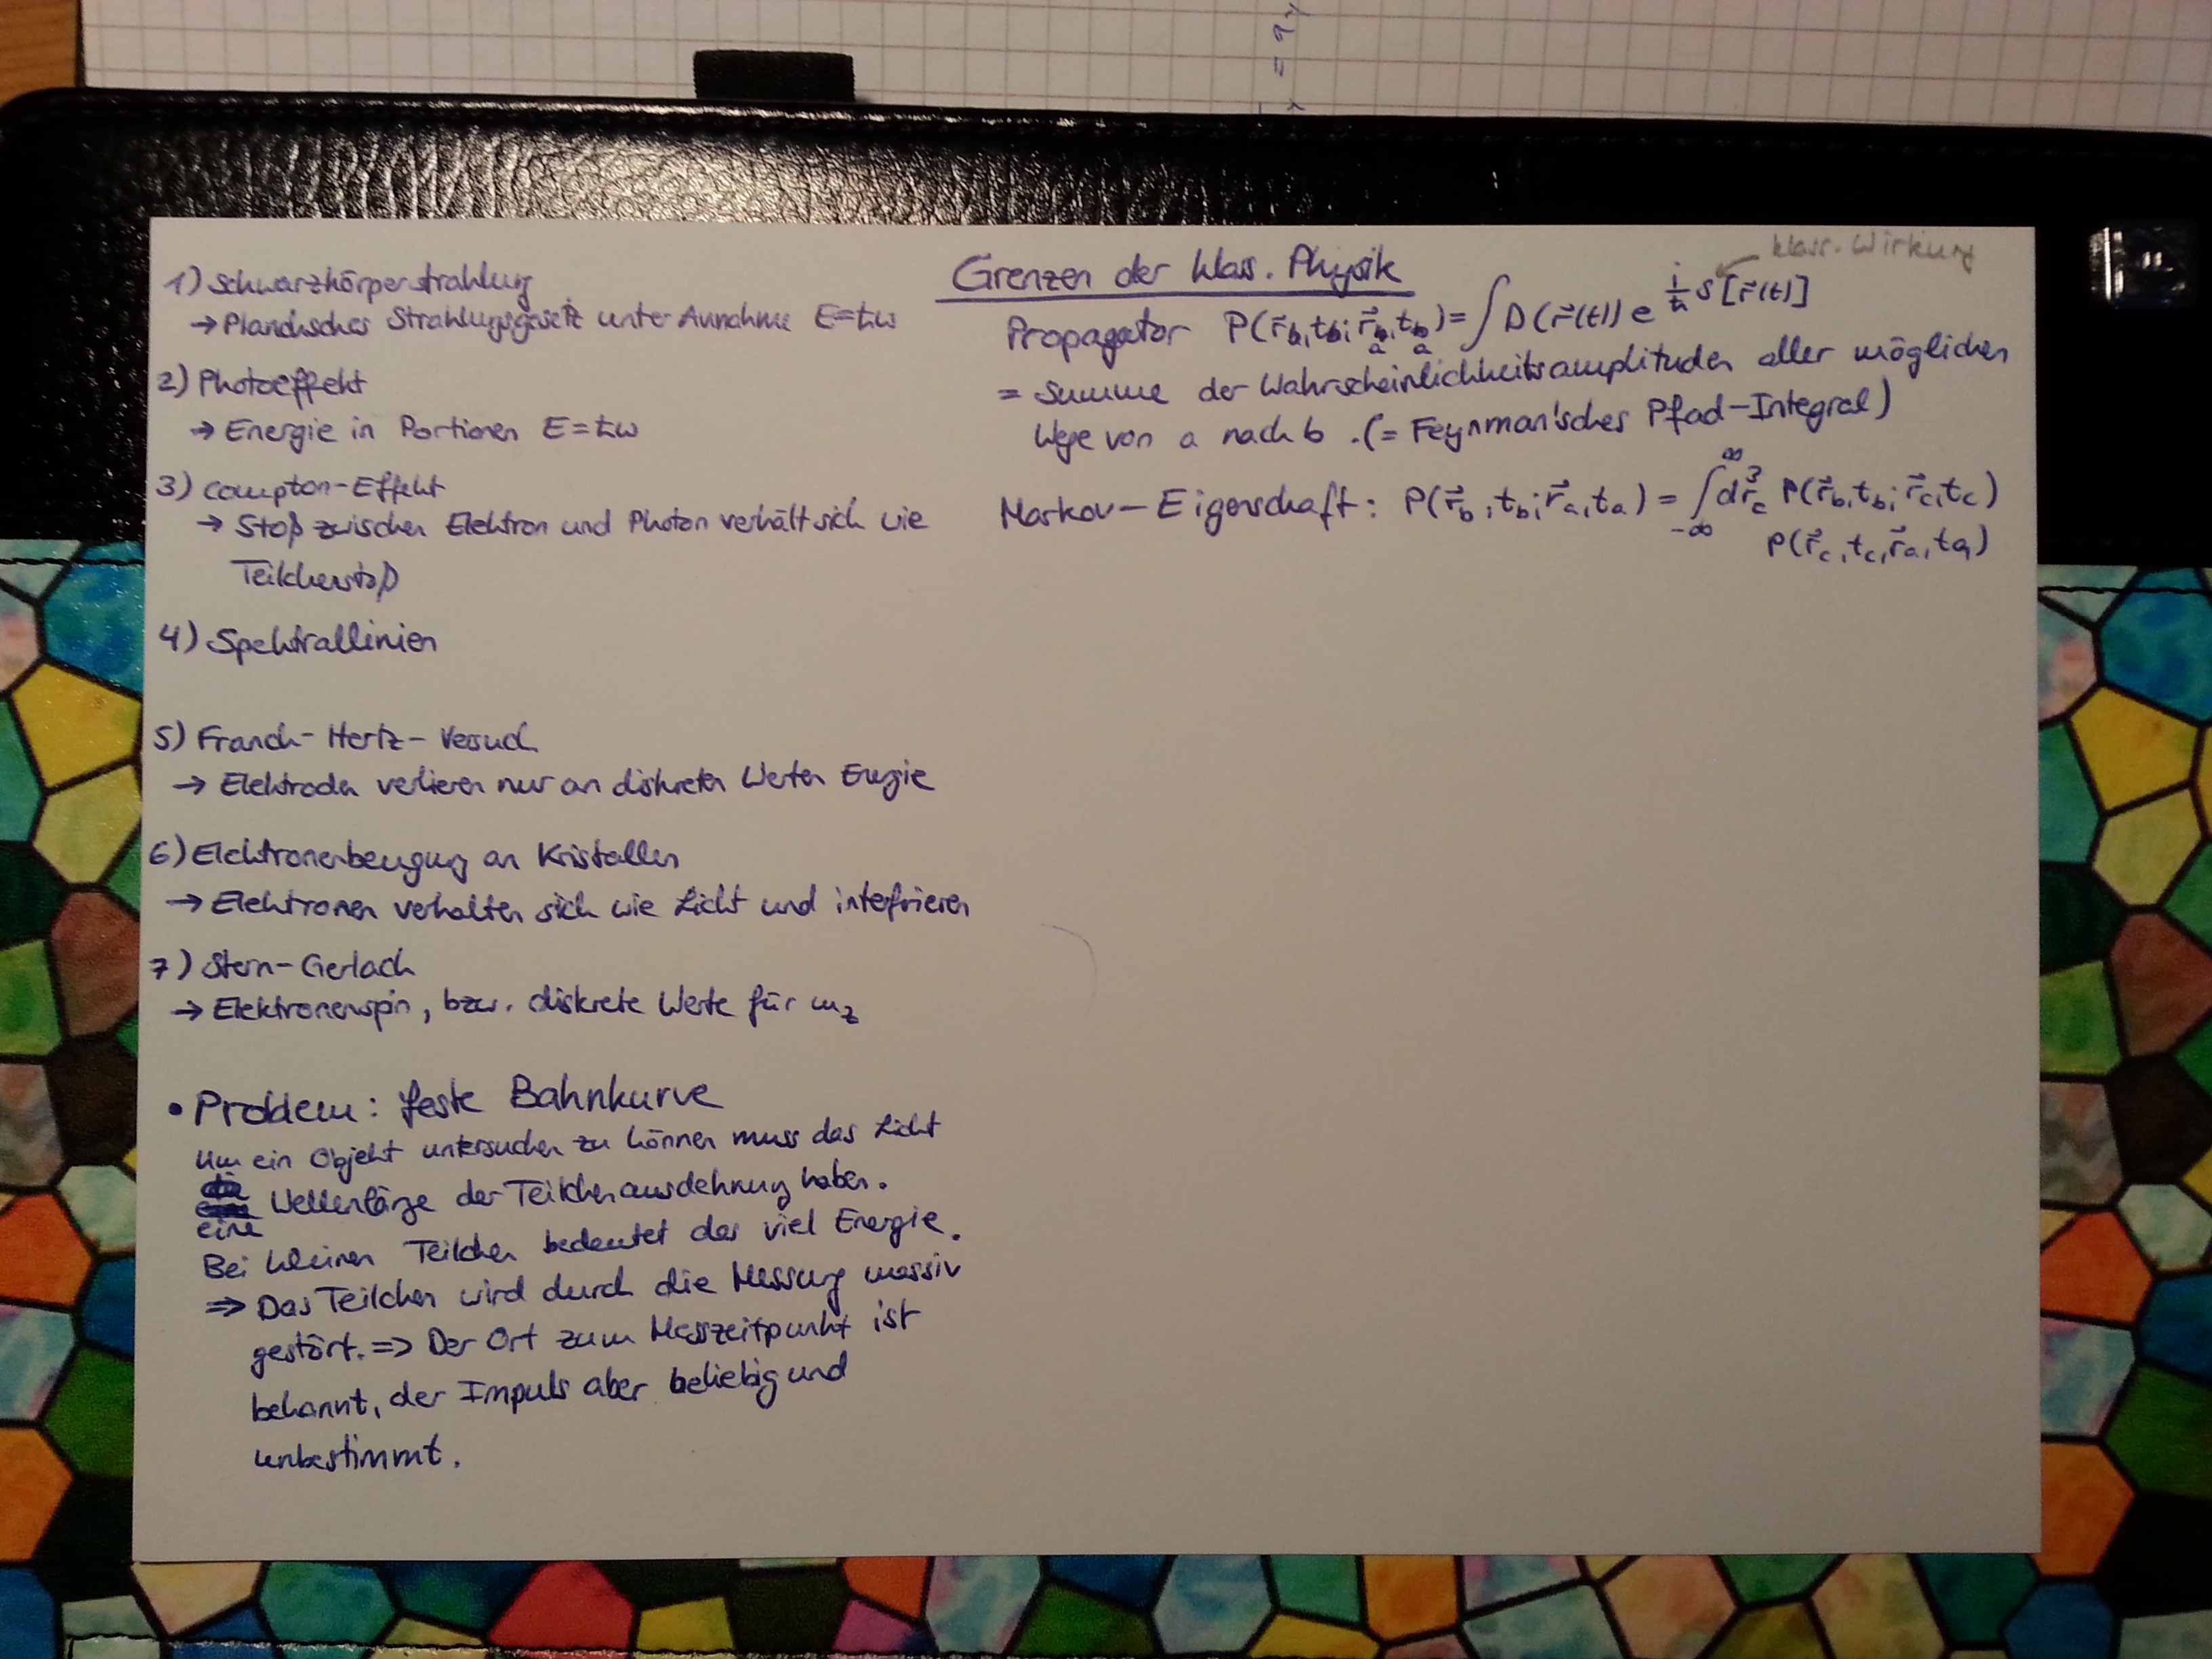 Grenzen der klass. Physik
1) Schwarzkörperstrahlung
→ Plancksches Strahlungsgesetz unter Annahme E=ħω
2) Photoeffekt
→ Energie in Portionen E=ħω
3) Compton-Effekt
→ Stoß zwischen Elektron und Photon verhält sich wie
Teilchenstoß
4) Spektrallinien
5) Franck-Hertz-Versuch
→ Elektroden verlieren nur an diskreten Werten Energie
6) Elektronenbeugung an Kristallen
→ Elektronen verhalten sich wie Licht und interfrieren
7) Stern-Gerlach
→ Elektronenspin, bzw. diskrete Werte für m_z
• Problem: feste Bahnkurve
Um ein Objekt untersuchen zu können muss das Licht
eine Wellenlänge der Teilchenausdehnung haben.
Bei kleinen Teilchen bedeutet das viel Energie.
⇒ Das Teilchen wird durch die Messung massiv
gestört. ⇒ Der Ort zum Messzeitpunkt ist
bekannt, der Impuls aber beliebig und
unbestimmt.
klass. Wirkung
Propagator P(r⃗_b,t_b; r⃗_a,t_a) = ∫ D(r⃗(t)) e^{i/ħ S[r⃗(t)]}
= Summe der Wahrscheinlichkeitsamplituden aller möglichen
Wege von a nach b. (= Feynman'sches Pfad-Integral)
Markov-Eigenschaft: P(r⃗_b,t_b; r⃗_a,t_a) = ∫_{-∞}^{∞} d³r⃗_c P(r⃗_b,t_b; r⃗_c,t_c)
P(r⃗_c,t_c, r⃗_a,t_a)